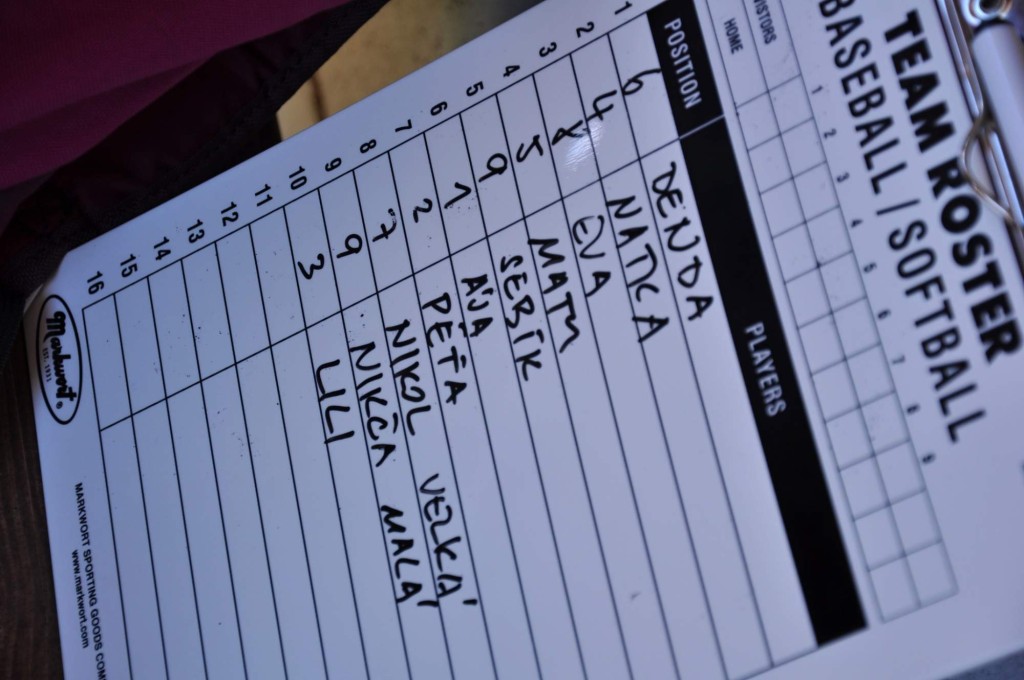 TEAM ROSTER
BASEBALL / SOFTBALL
1 2 3 4 5 6 7 8 9
VISITORS
HOME
POSITION PLAYERS
1 6 DENDA
2 4 NATICA
3 8 EVA
4 5 MATY
5 9 SEBÍK
6 1 ÁJA
7 2 PEŤA
8 7 NIKOL VELKÁ
9 9 NIKČA MALÁ
10 3 LILI
11
12
13
14
15
16
Markwort®
EST. 1931
MARKWORT SPORTING GOODS COM
www.markwort.com